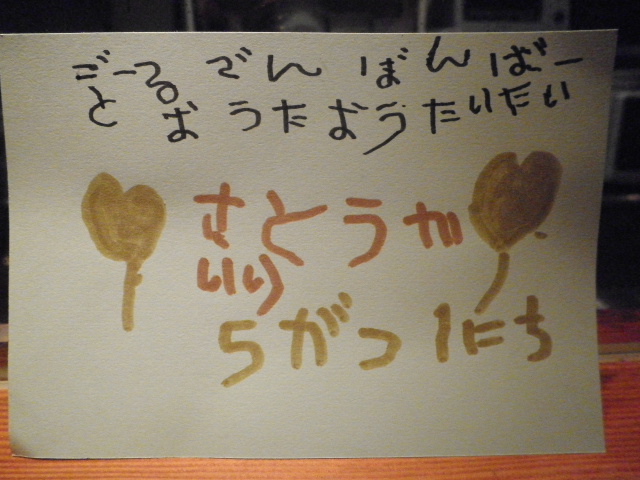 ごーる でん ぼんばー
と お うた おうたいたい
さとうか
いり
5がつ1にち